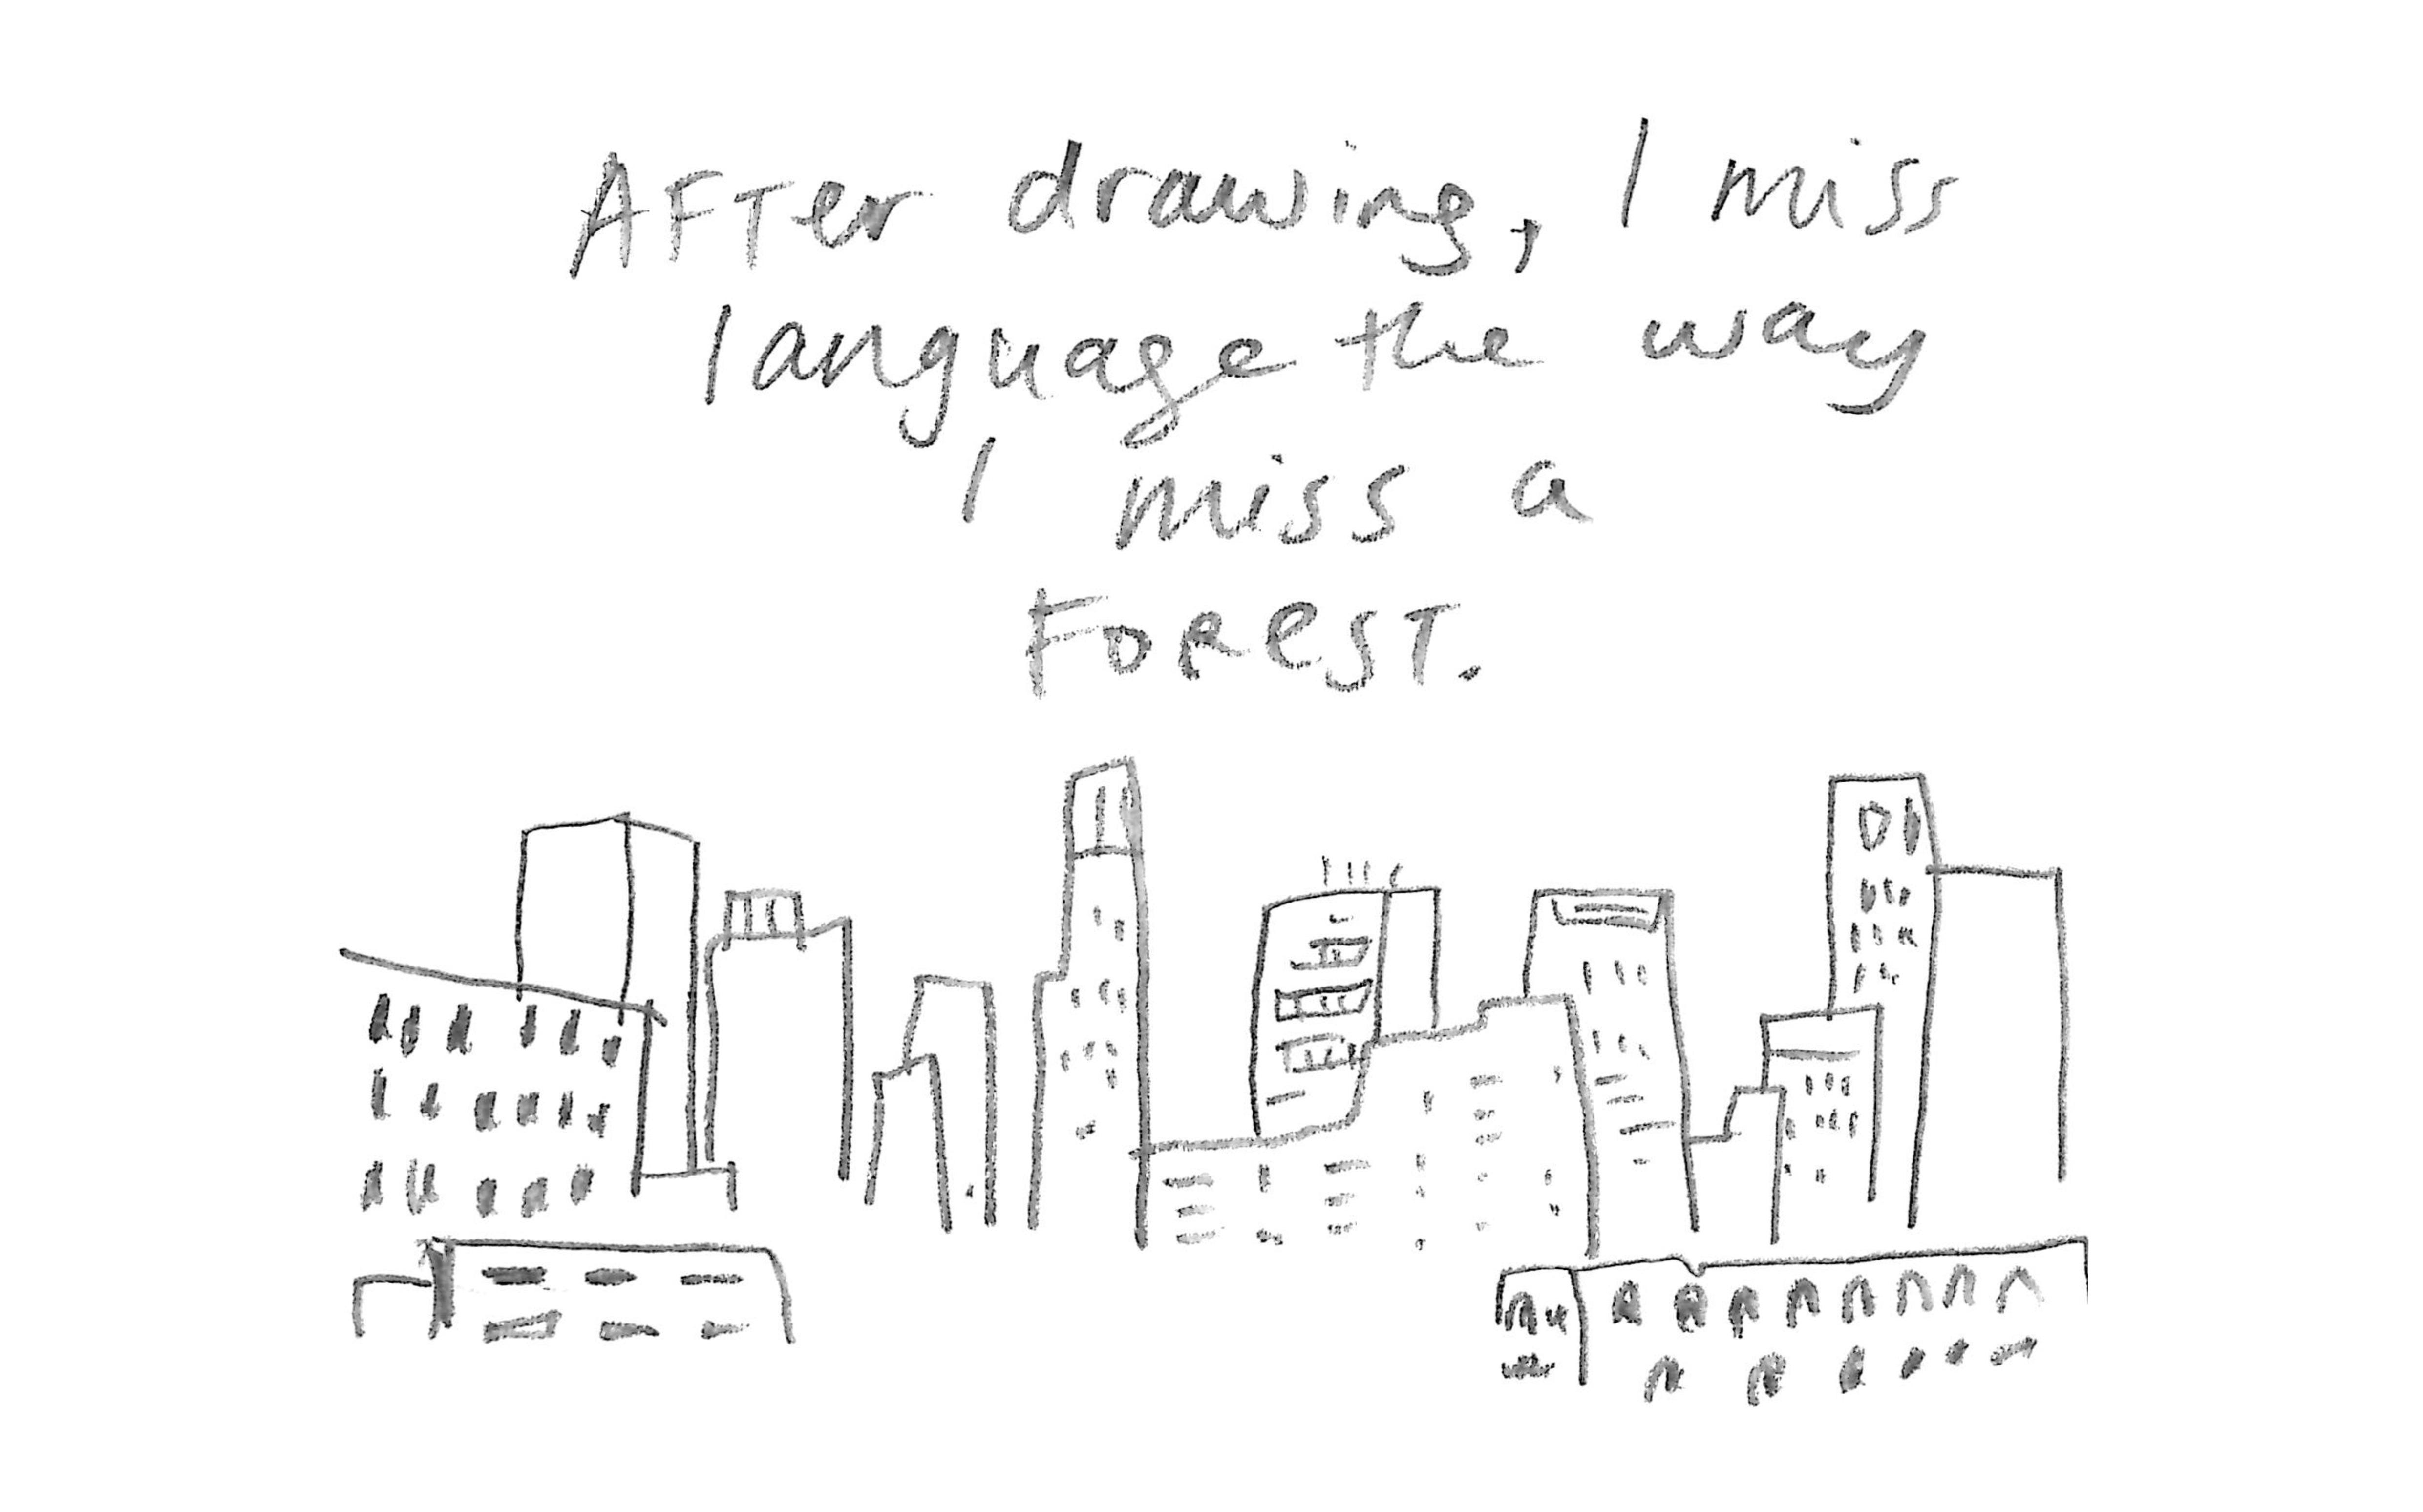 After drawing, I miss
language the way
I miss a
Forest.